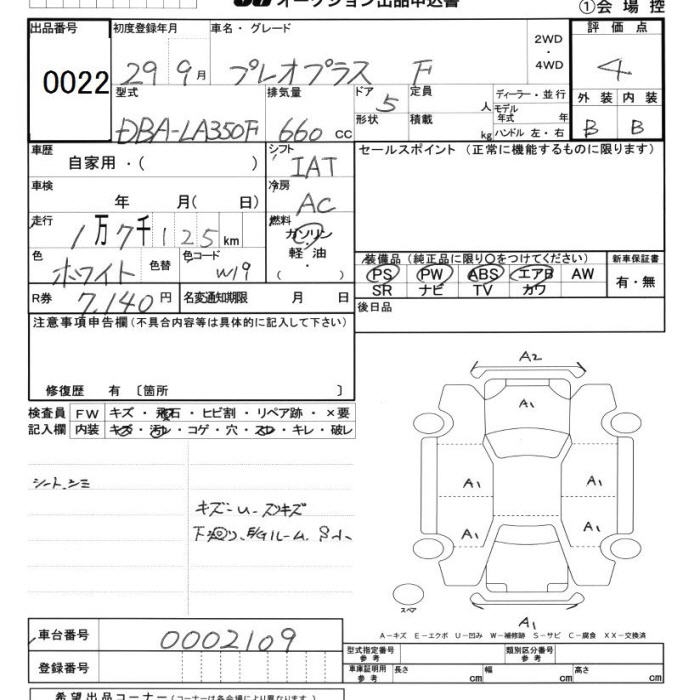 オークション出品申込書 ①会場控
出品番号 初度登録年月 車名・グレード 評価点
0022 29 9月 プレオプラス F 2WD・4WD 4
型式 排気量 ドア 定員 ディーラー・並行 外装 内装
DBA-LA350F 660 cc 5 人 モデル年式 年 B B
形状 積載 kg ハンドル 左・右
車歴 シフト セールスポイント (正常に機能するものに限ります)
自家用・( ) IAT
車検 冷房
年 月( 日) AC
走行 燃料
1万7千125km ガソリン
軽・油
( ・ )
色 色替 色コード 装備品 (純正品に限り〇をつけてください) 新車保証書
ホワイト W19 PS PW ABS エアB AW 有・無
SR ナビ TV カワ
R券 7,140円 名変通知期限 月 日 後日品
注意事項申告欄(不具合内容等は具体的に記入して下さい)
修復歴 有 〔箇所 〕
検査員 FW キズ・飛石・ヒビ割・リペア跡・×要
記入欄 内装 キズ・汚レ・コゲ・穴・スレ・キレ・破レ
シート シミ
キズ-U- スリキズ
下廻り、E/Gルーム、Sル
A2
A1
A1 A1
A1 A1
スペア
A1
A-キズ E-エクボ U-凹み W-補修跡 S-サビ C-腐食 XX-交換済
車台番号 0002109 型式指定番号 参考 類別区分番号 参考
登録番号 車庫証明用 参考 長さ cm 幅 cm 高さ cm
希望出品コーナー(コーナーは各会場により異なります)